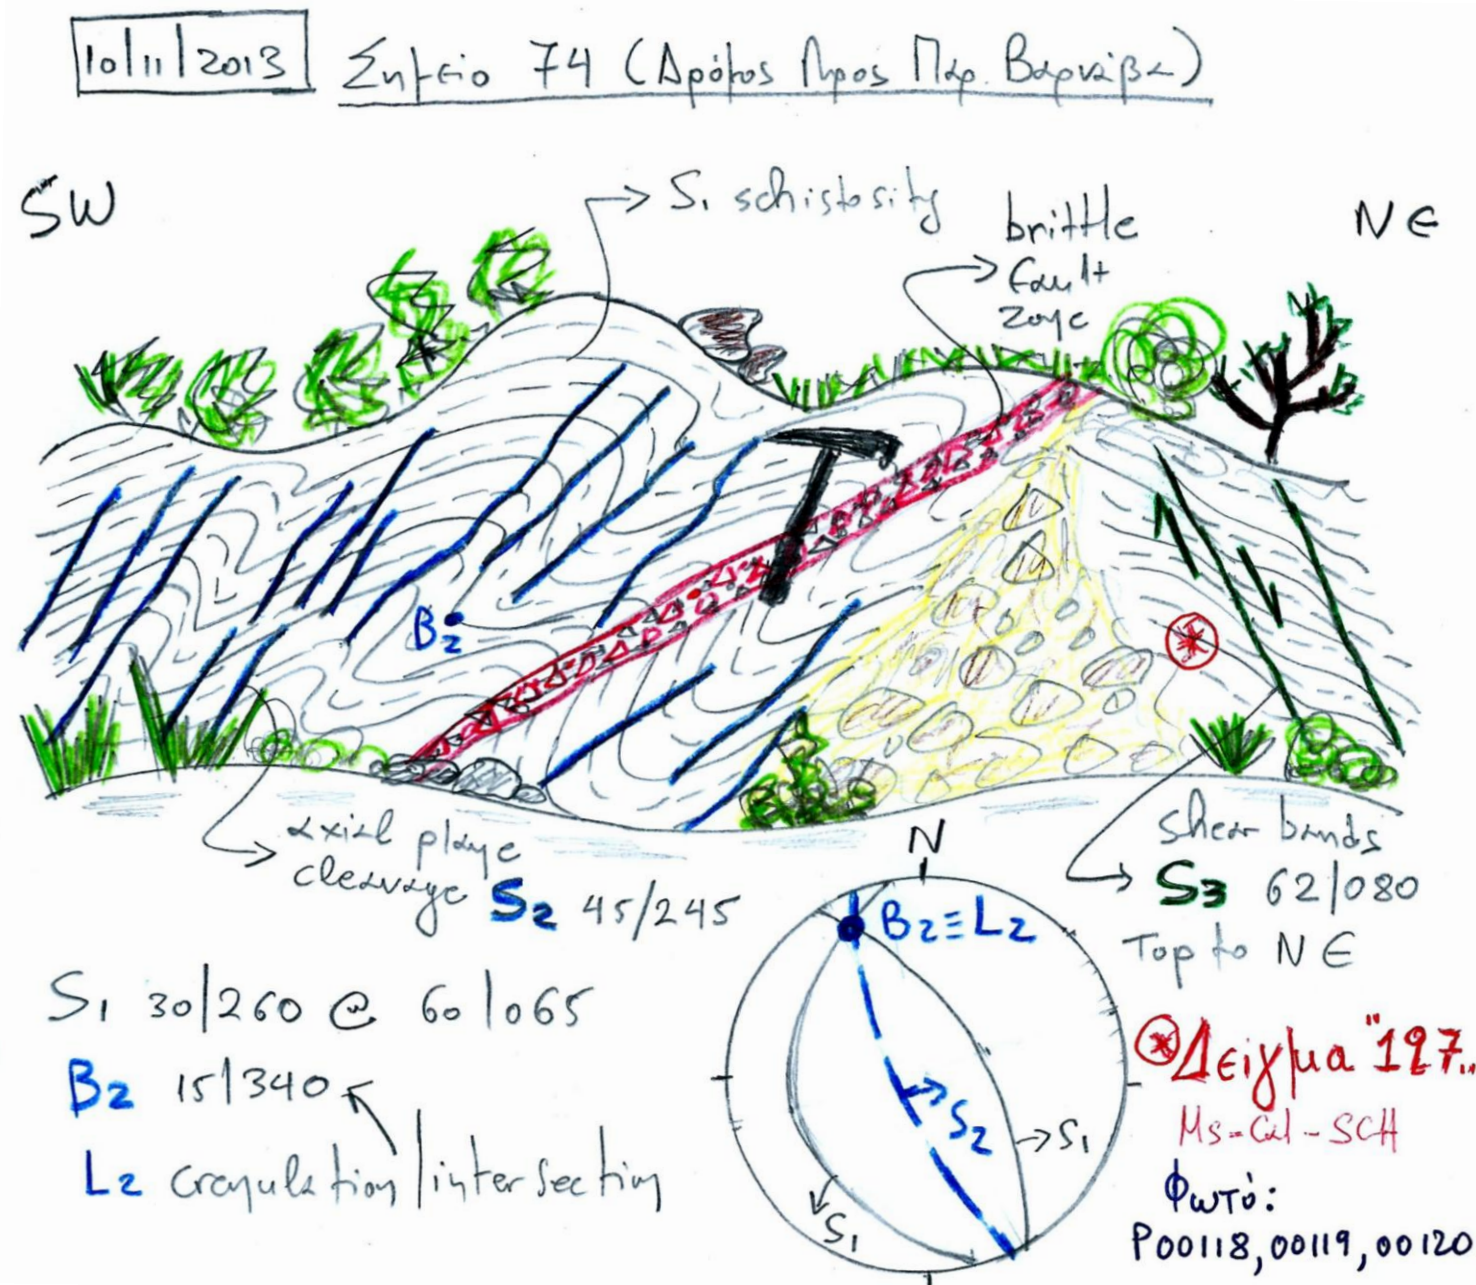 10/11/2013 Σημείο 74 (Δρόμος Προς Παρ. Βαρνάβα)
SW
S1 schistosity
brittle
fault
zone
NE
B2
axial plane
cleavage S2 45/245
shear bands
S3 62/080
Top to NE
N
B2≡L2
S2
S1
S1
S1 30/260 @ 60/065
B2 15/340
L2 crenulation/intersection
Δείγμα "127"
Ms-Cal-SCH
Φωτό:
P00118,00119,00120